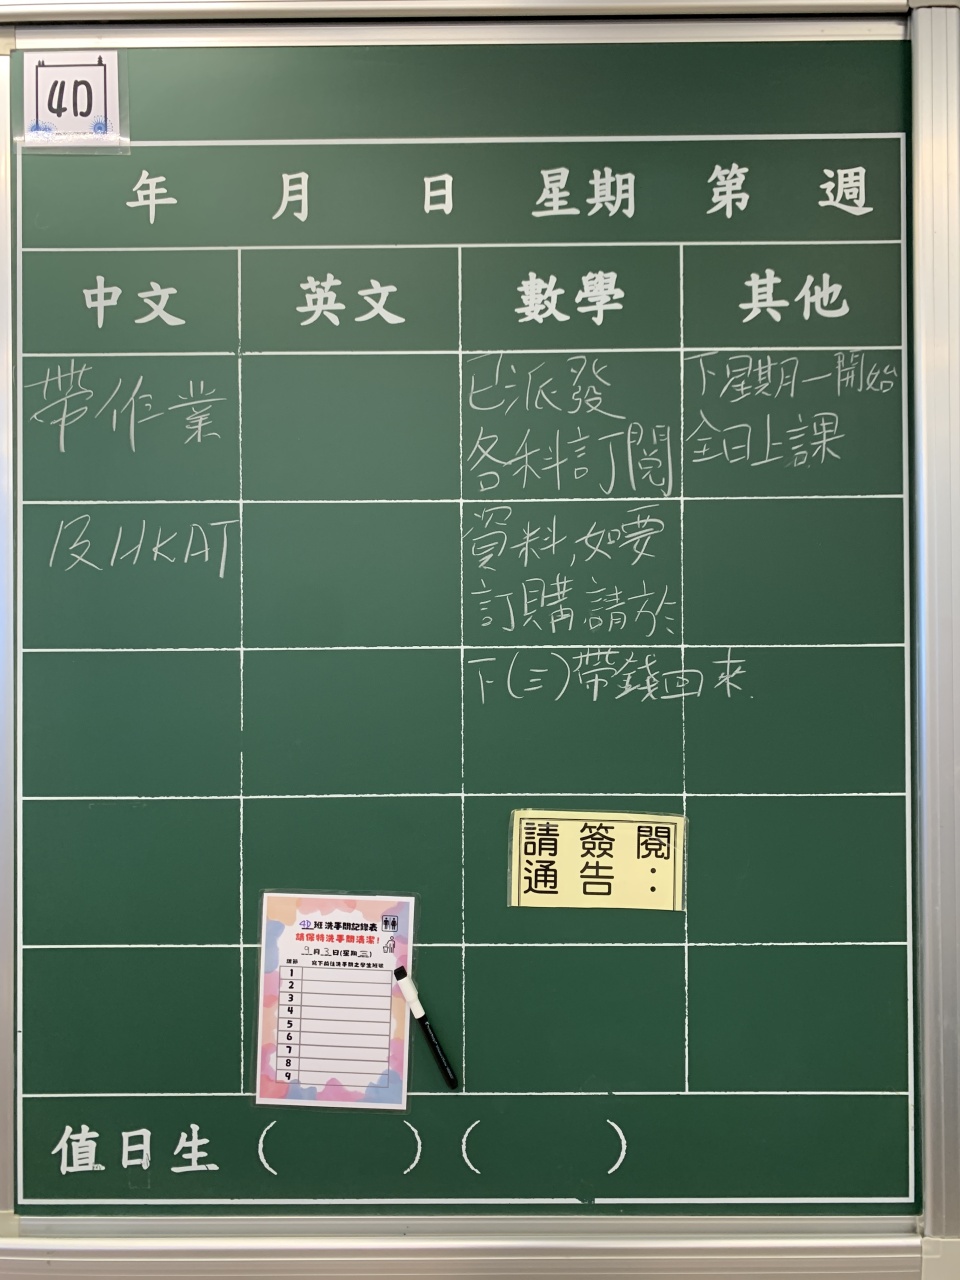 4D
年 月 日 星期 第 週
中文 英文 數學 其他
帶作業
及HKAT
已派發
各科訂閱
資料,如要
訂購請於
下(三)帶錢回來.
下星期一開始
全日上課
請簽閱
通告：
4D班洗手間記錄表
請保持洗手間清潔！
9月3日(星期三)
課節 寫下前往洗手間之學生班號
1
2
3
4
5
6
7
8
9
值日生 ( ) ( )